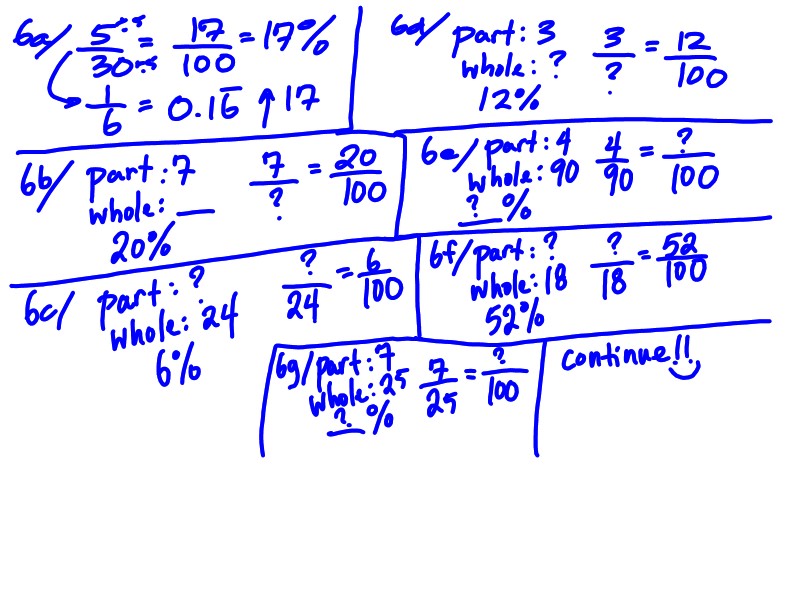 6a/ 5/30 = 17/100 = 17%
1/6 = 0.16̅ ↑ 17
6d/ part: 3
whole: ?
12%
3/? = 12/100
6b/ part: 7
whole: __
20%
7/? = 20/100
6e/ part: 4
whole: 90
? %
4/90 = ?/100
6c/ part: ?
whole: 24
6%
?/24 = 6/100
6f/ part: ?
whole: 18
52%
?/18 = 52/100
6g/ part: 7
whole: 25
? %
7/25 = ?/100
continue!!